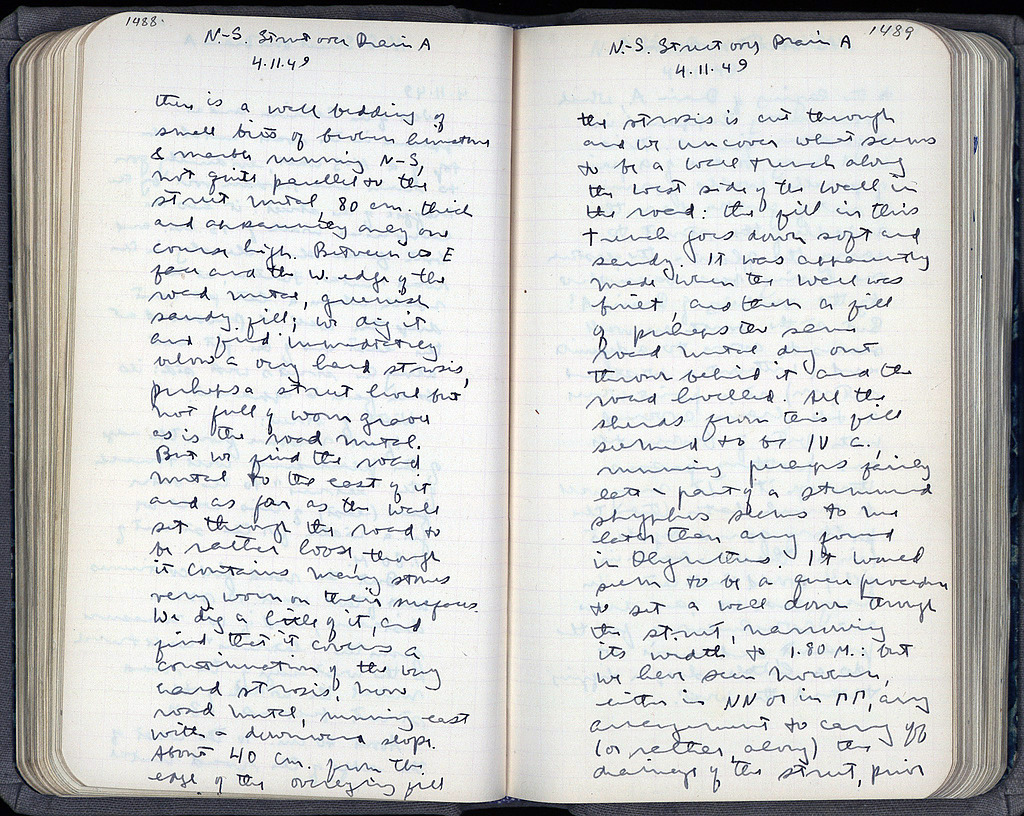 1488.
N.-S. Street over Drain A
4.11.49
there is a wall bedding of
small bits of broken limestone
& marble running N-S,
not quite parallel to the
street metal 80 cm. thick
and apparently only one
course high. Between its E
face and the W. edge of the
road metal, greenish
sandy fill; we dig it
and find immediately
below a very hard strosis,
perhaps a street level but
not full of worn gravel
as is the road metal.
But we find the road
metal to the east of it
and as far as the wall
set through the road to
be rather loose, though
it contains many stones
very worn on their surfaces.
We dig a little of it, and
find that it covers a
continuation of the very
hard strosis, now
road metal, running east
with a downward slope.
About 40 cm. from the
edge of the overlying fill
1489
N.-S. Street over Drain A
4.11.49
the strosis is cut through
and we uncover what seems
to be a wall trench along
the west side of the wall in
the road: the fill in this
trench goes down soft and
sandy. It was apparently
made when the wall was
built, and then a fill
of perhaps the same
road metal dug out
thrown behind it and the
road levelled. All the
sherds from this fill
seemed to be IV c.,
running perhaps fairly
late - part of a stemmed
skyphos seems to me
later than any found
in Olynthus. It would
seem to be a queer procedure
to set a wall down through
the street, narrowing
its width to 1.80 M.: but
we have seen however,
either in NN or in ΠΠ, any
arrangement to carry off
(or rather, along) the
drainage of the street, prior